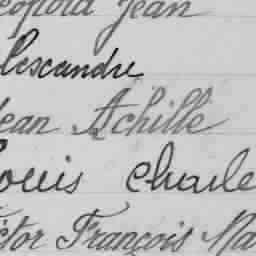 Léopold Jean
Alexandre
Jean Achille
Louis Charle
Victor François Ma